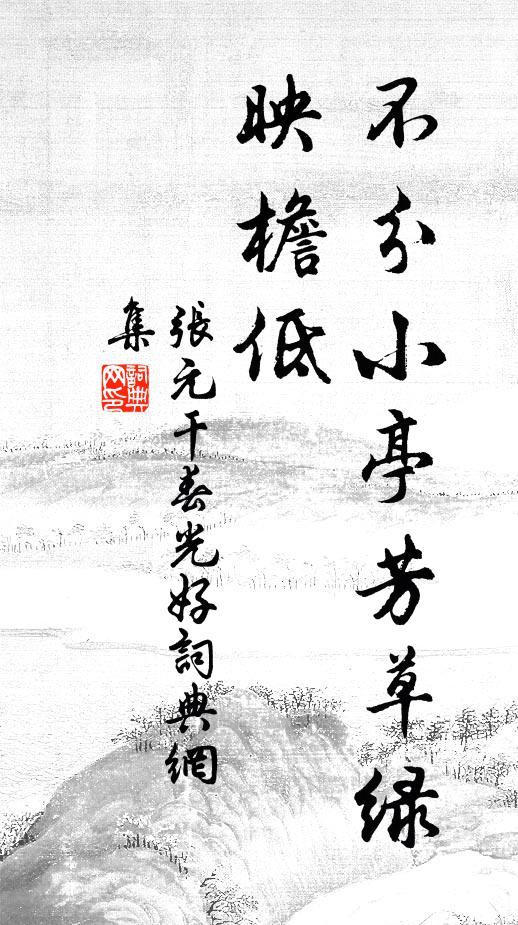 不分小亭芳草绿
映檐低
張元干春光好詞典網
集
詞典網印